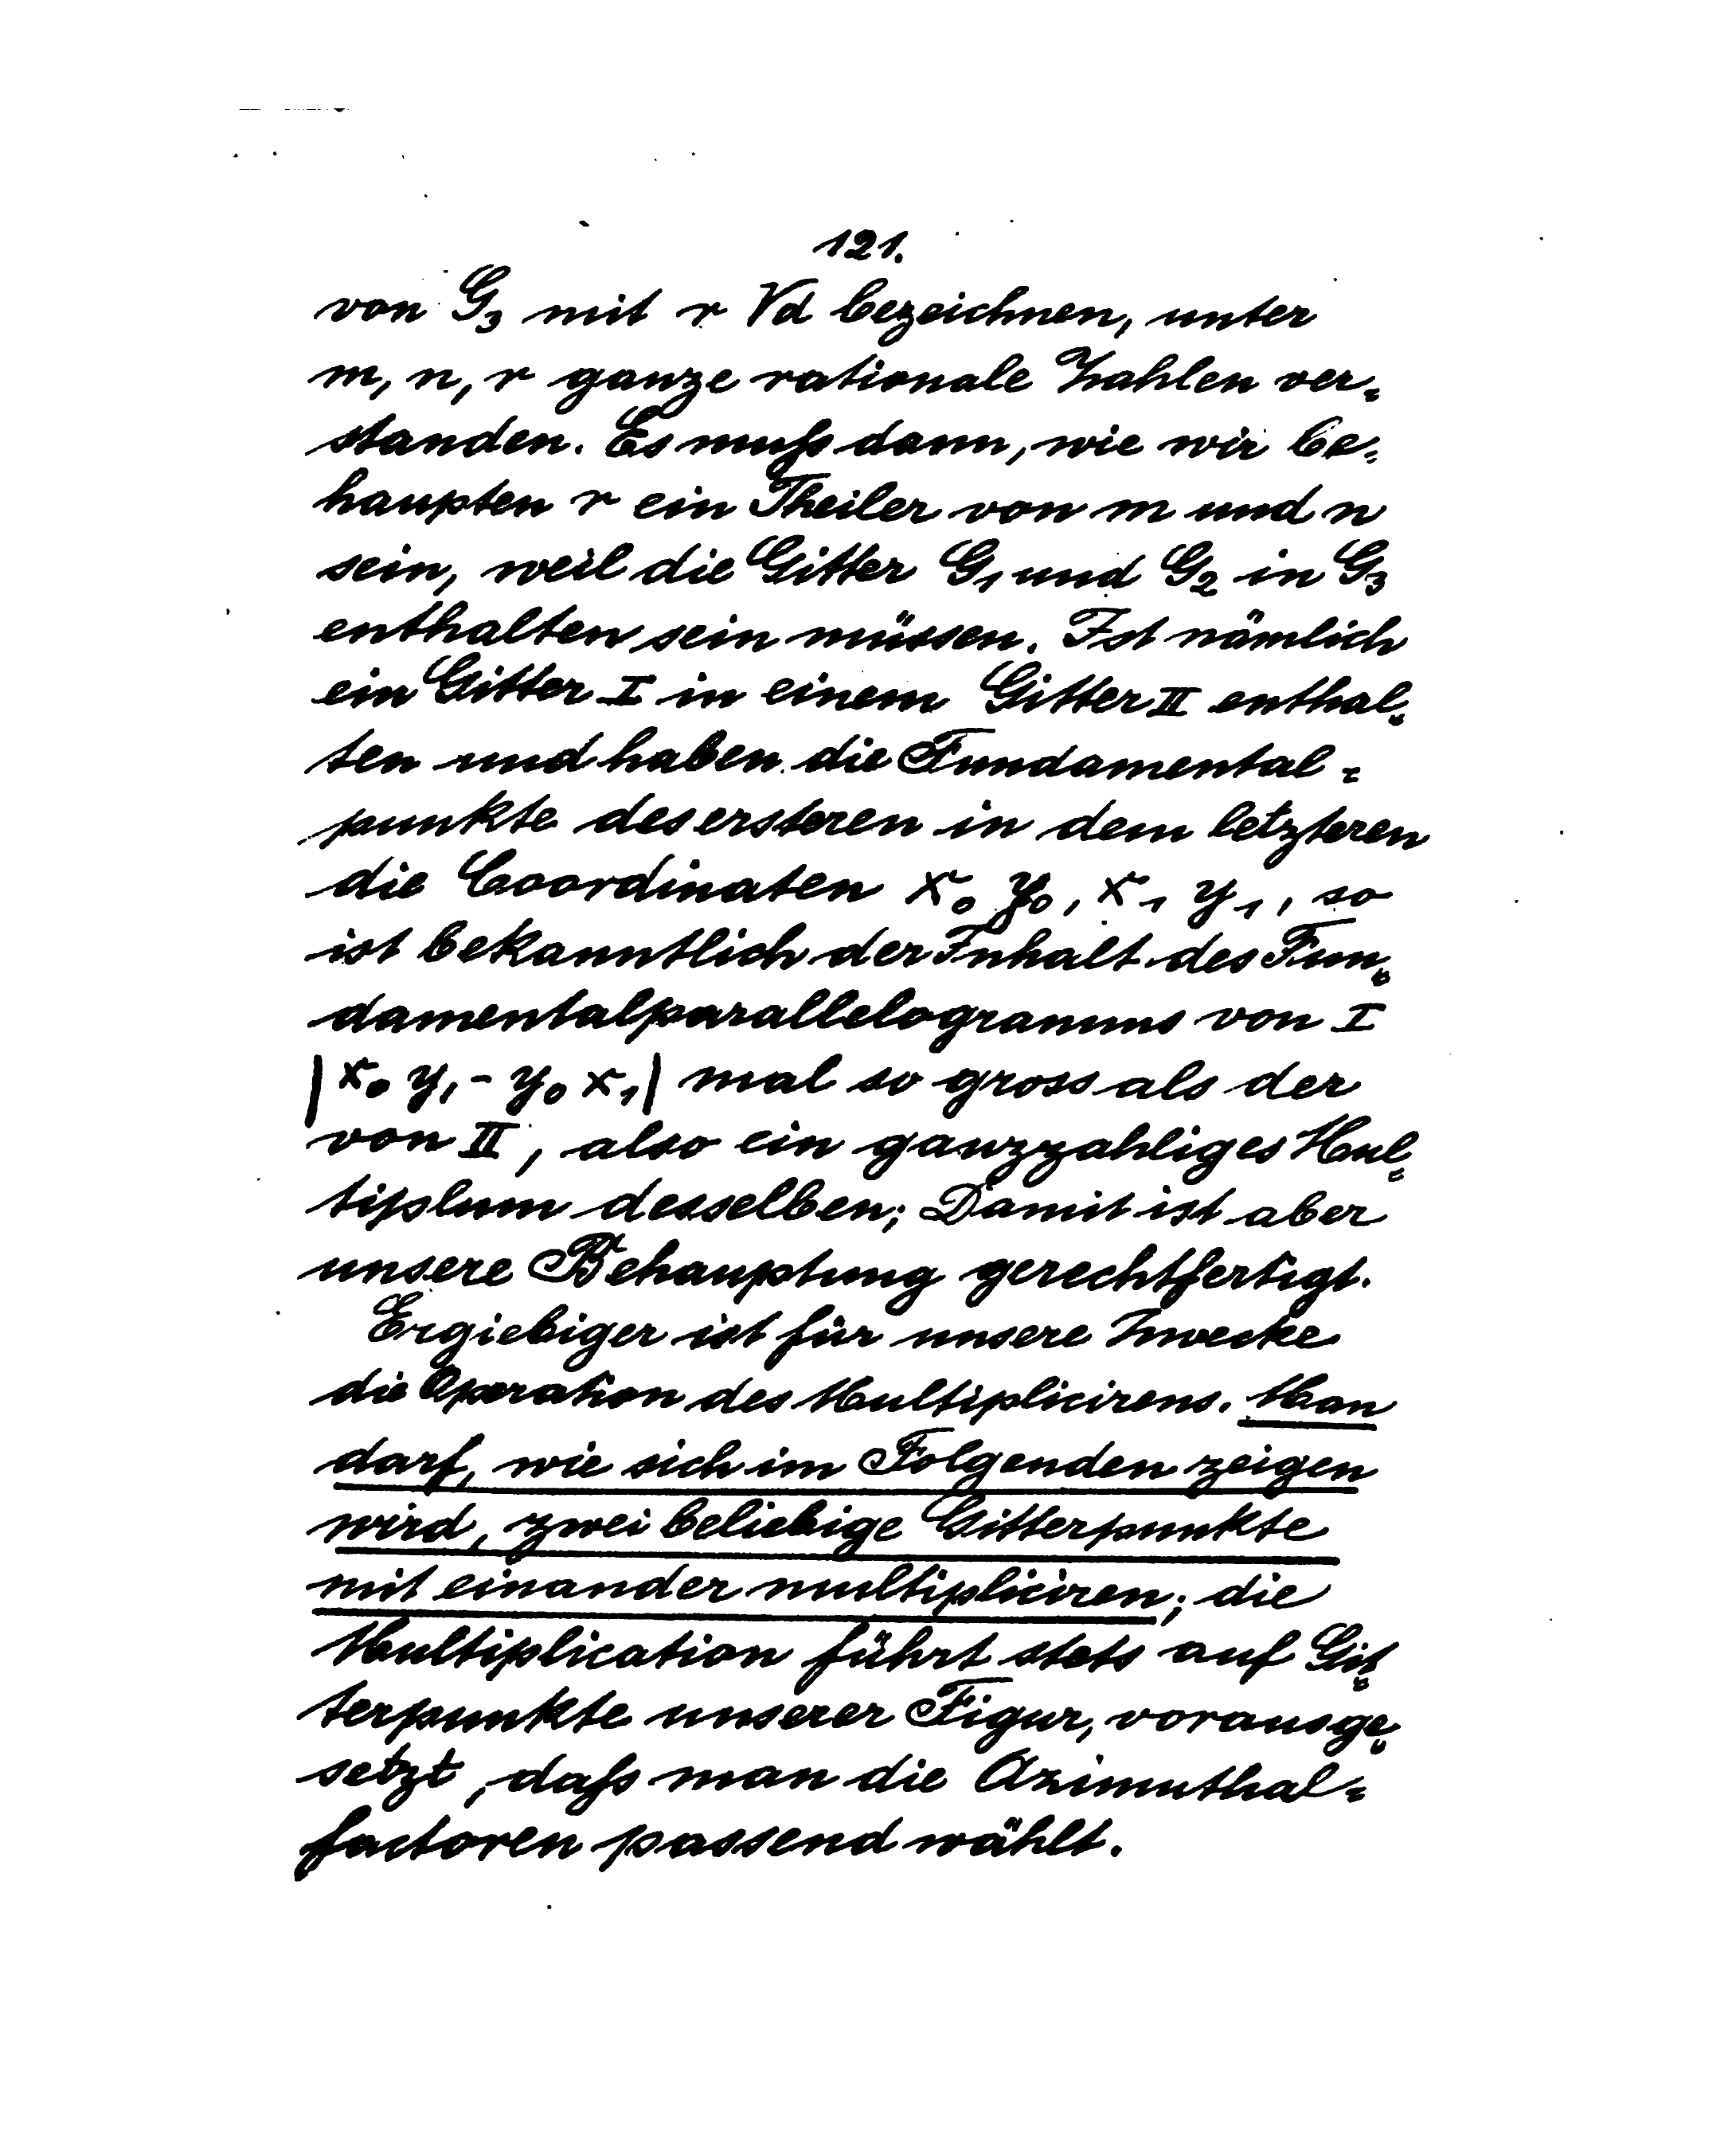 121.
von G₃ mit r √d bezeichnen, unter
m, n, r ganze rationale Zahlen ver=
standen. Es muß dann, wie wir be=
haupten r ein Theiler von m und n
sein, weil die Gitter G₁ und G₂ in G₃
enthalten sein müssen. Ist nämlich
ein Gitter I in einem Gitter II enthal=
ten und haben die Fundamental=
punkte des ersteren in dem letzteren
die Coordinaten x₀ y₀, x₁ y₁, so
ist bekanntlich der Inhalt des Fun=
damentalparallelogramms von I
|x₀ y₁ - y₀ x₁| mal so gross als der
von II, also ein ganzzahliges Mul=
tiplum desselben; Damit ist aber
unsere Behauptung gerechtfertigt.
Ergiebiger ist für unsere Zwecke
die Operation des Multiplicirens. Man
darf, wie sich im Folgenden zeigen
wird, zwei beliebige Gitterpunkte
mit einander multipliciren; die
Multiplication führt stets auf Git=
terpunkte unserer Figur, vorausge=
setzt, daß man die Azimuthal=
factoren passend wählt.